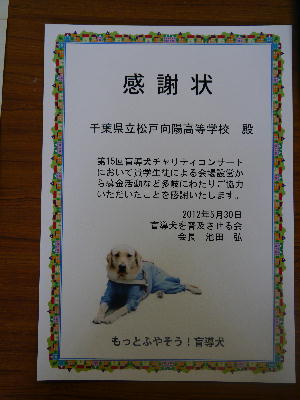 感謝状
千葉県立松戸向陽高等学校　殿
第15回盲導犬チャリティコンサート
において貴学生徒による会場設営か
ら募金活動など多岐にわたりご協力
いただいたことを感謝いたします。
2012年5月30日
盲導犬を普及させる会
会長　池田　弘
もっとふやそう！盲導犬